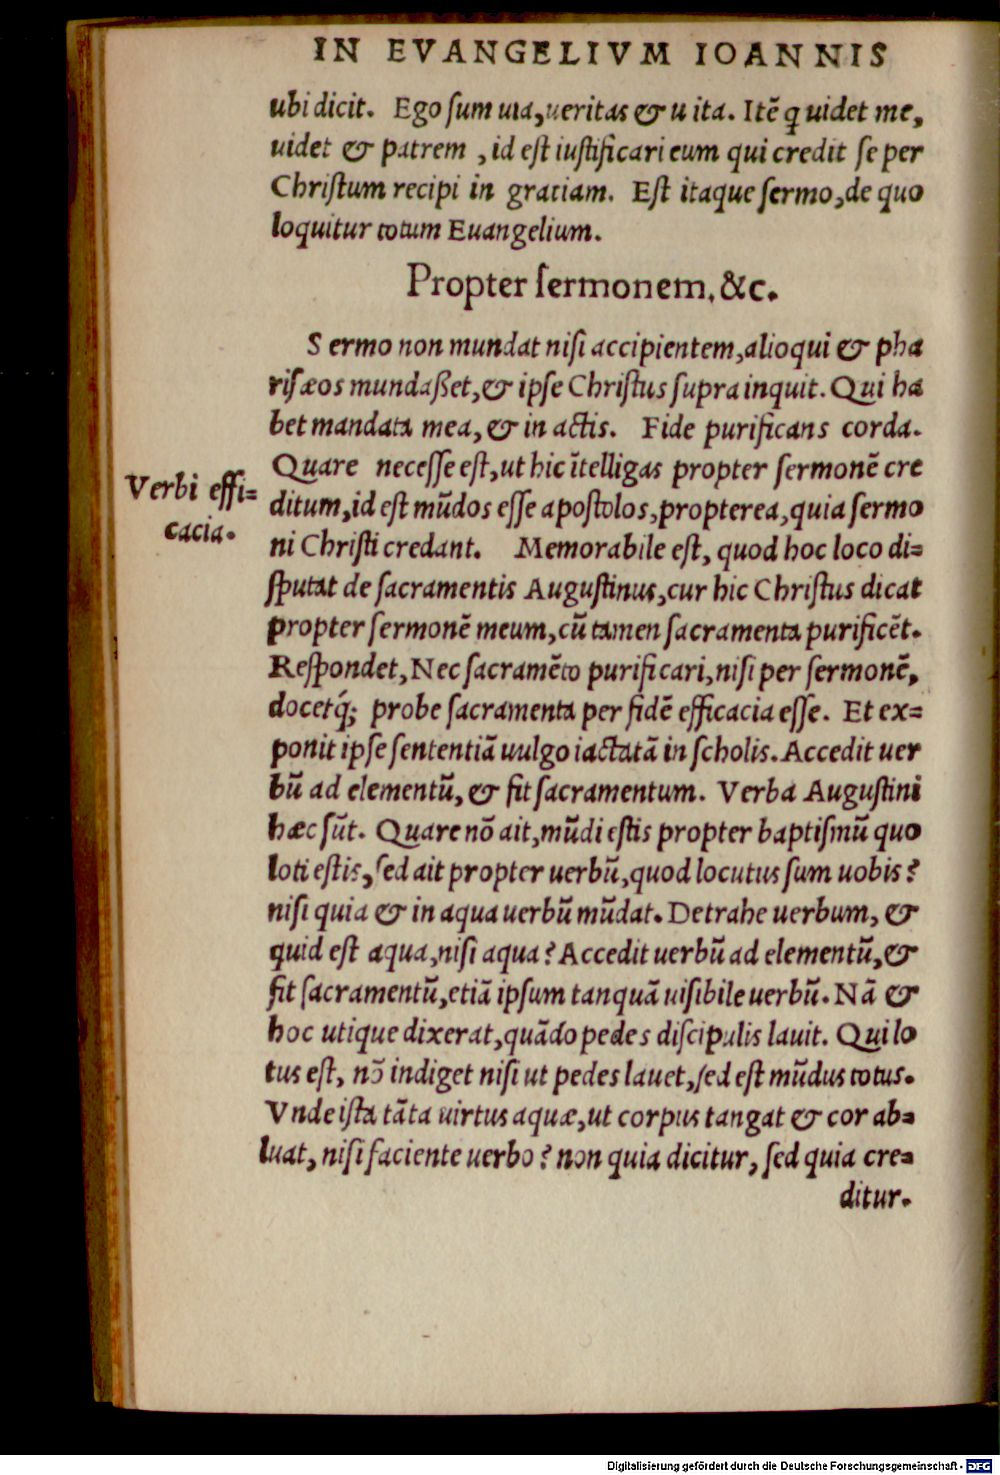 IN EVANGELIVM IOANNIS
ubi dicit. Ego ſum uia, ueritas & uita. Itē q uidet me,
uidet & patrem, id eſt iuſtificari eum qui credit ſe per
Chriſtum recipi in gratiam. Eſt itaque ſermo, de quo
loquitur totum Euangelium.
Propter ſermonem, &c.
Sermo non mundat niſi accipientem, alioqui & pha
riſæos mundaßet, & ipſe Chriſtus ſupra inquit. Qui ha
bet mandata mea, & in actis. Fide purificans corda.
Quare neceſſe eſt, ut hic ītelligas propter ſermonē cre
Verbi effi=
cacia.
ditum, id eſt mūdos eſſe apoſtolos, propterea, quia ſermo
ni Chriſti credant. Memorabile eſt, quod hoc loco di=
ſputat de ſacramentis Auguſtinus, cur hic Chriſtus dicat
propter ſermonē meum, cū tamen ſacramenta purificēt.
Reſpondet, Nec ſacramēto purificari, niſi per ſermonē,
docetq́; probe ſacramenta per fidē efficacia eſſe. Et ex=
ponit ipſe ſententiā uulgo iactatā in ſcholis. Accedit uer
bū ad elementū, & fit ſacramentum. Verba Auguſtini
hæc ſūt. Quare nō ait, mūdi eſtis propter baptiſmū quo
loti eſtis, ſed ait propter uerbū, quod locutus ſum uobis?
niſi quia & in aqua uerbū mūdat. Detrahe uerbum, &
quid eſt aqua, niſi aqua? Accedit uerbū ad elementū, &
fit ſacramentū, etiā ipſum tanquā uiſibile uerbū. Nā &
hoc utique dixerat, quādo pedes diſcipulis lauit. Qui lo
tus eſt, nō indiget niſi ut pedes lauet, ſed eſt mūdus totus.
Vnde iſta tāta uirtus aquæ, ut corpus tangat & cor ab=
luat, niſi faciente uerbo? non quia dicitur, ſed quia cre=
ditur.
Digitalisierung gefördert durch die Deutsche Forschungsgemeinschaft - DFG